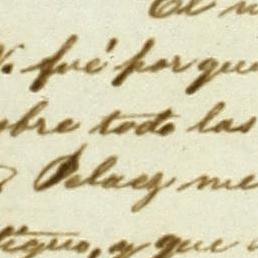 El
fué por que
sobre todo las
Pelaez me
tiguo, y que